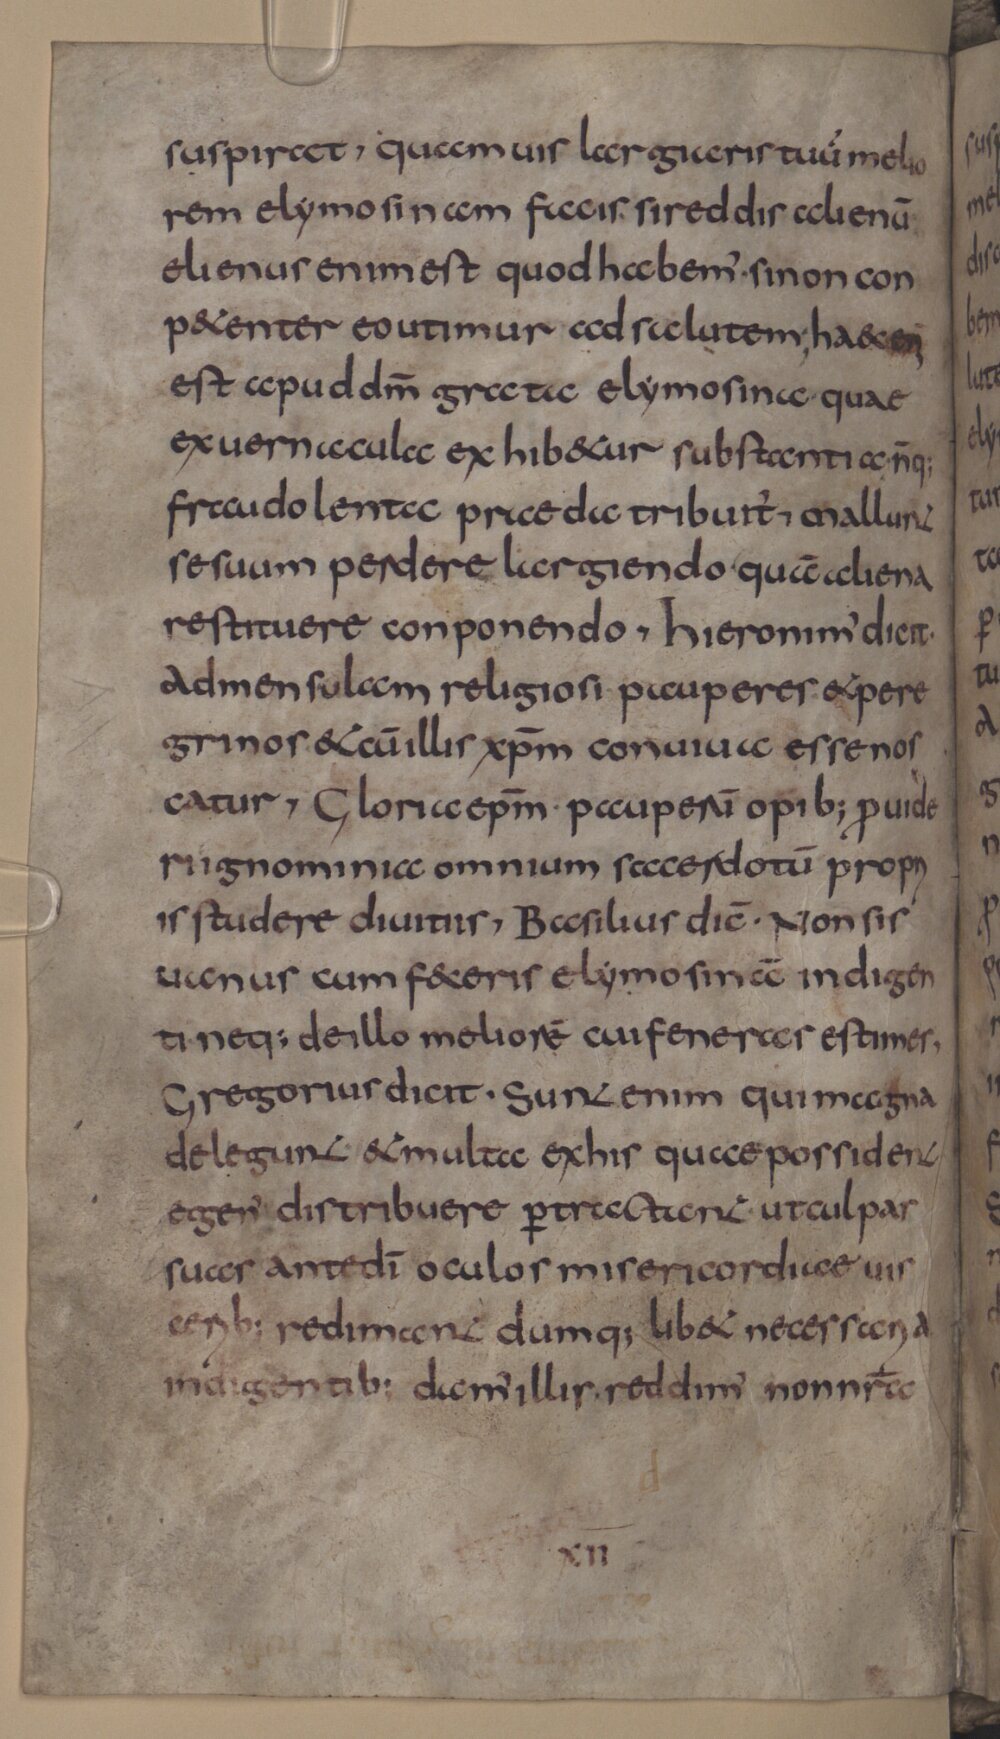 suspirat, quamuis largiaris tuū melio
rem elymosinam facis. si reddis alienū
elienus enim est quod habem᾿. si non con
p&enter eo utimur ad salutem, haec en̄
est apud dm̄ grata elymosina quae
ex uernacula exhib&ur substantia. n̄q;
fraudolenta praeda tribuit᾿, mallunt
se suum perdere largiendo. quā aliena
restituere conponendo, hieronim᾿ dicit.
Ad mensulam religiosi pauperes & pere
grinos & cū illis xp̄m conuiua esse nos
catur, Gloria ep̄m. pauperū opib; ꝓuide
ri ignominia omnium sacerdotū propri
is studere diuitiis, Basilius dic̄. Non sis
uanus cum feceris elymosinā indigen
ti. neq; de illo meliorē cui feneras estimes,
Gregorius dicit. Sunt enim qui magna
delegunt & multa ex his quae possident
egen᾿ distribuere ꝑtractant ut culpas
suas ante dī oculos misericordiae uis
cerib; redimant dumq; lib& necessaria
indigentib; dam᾿ illis. reddim᾿ non nr̄a
xii